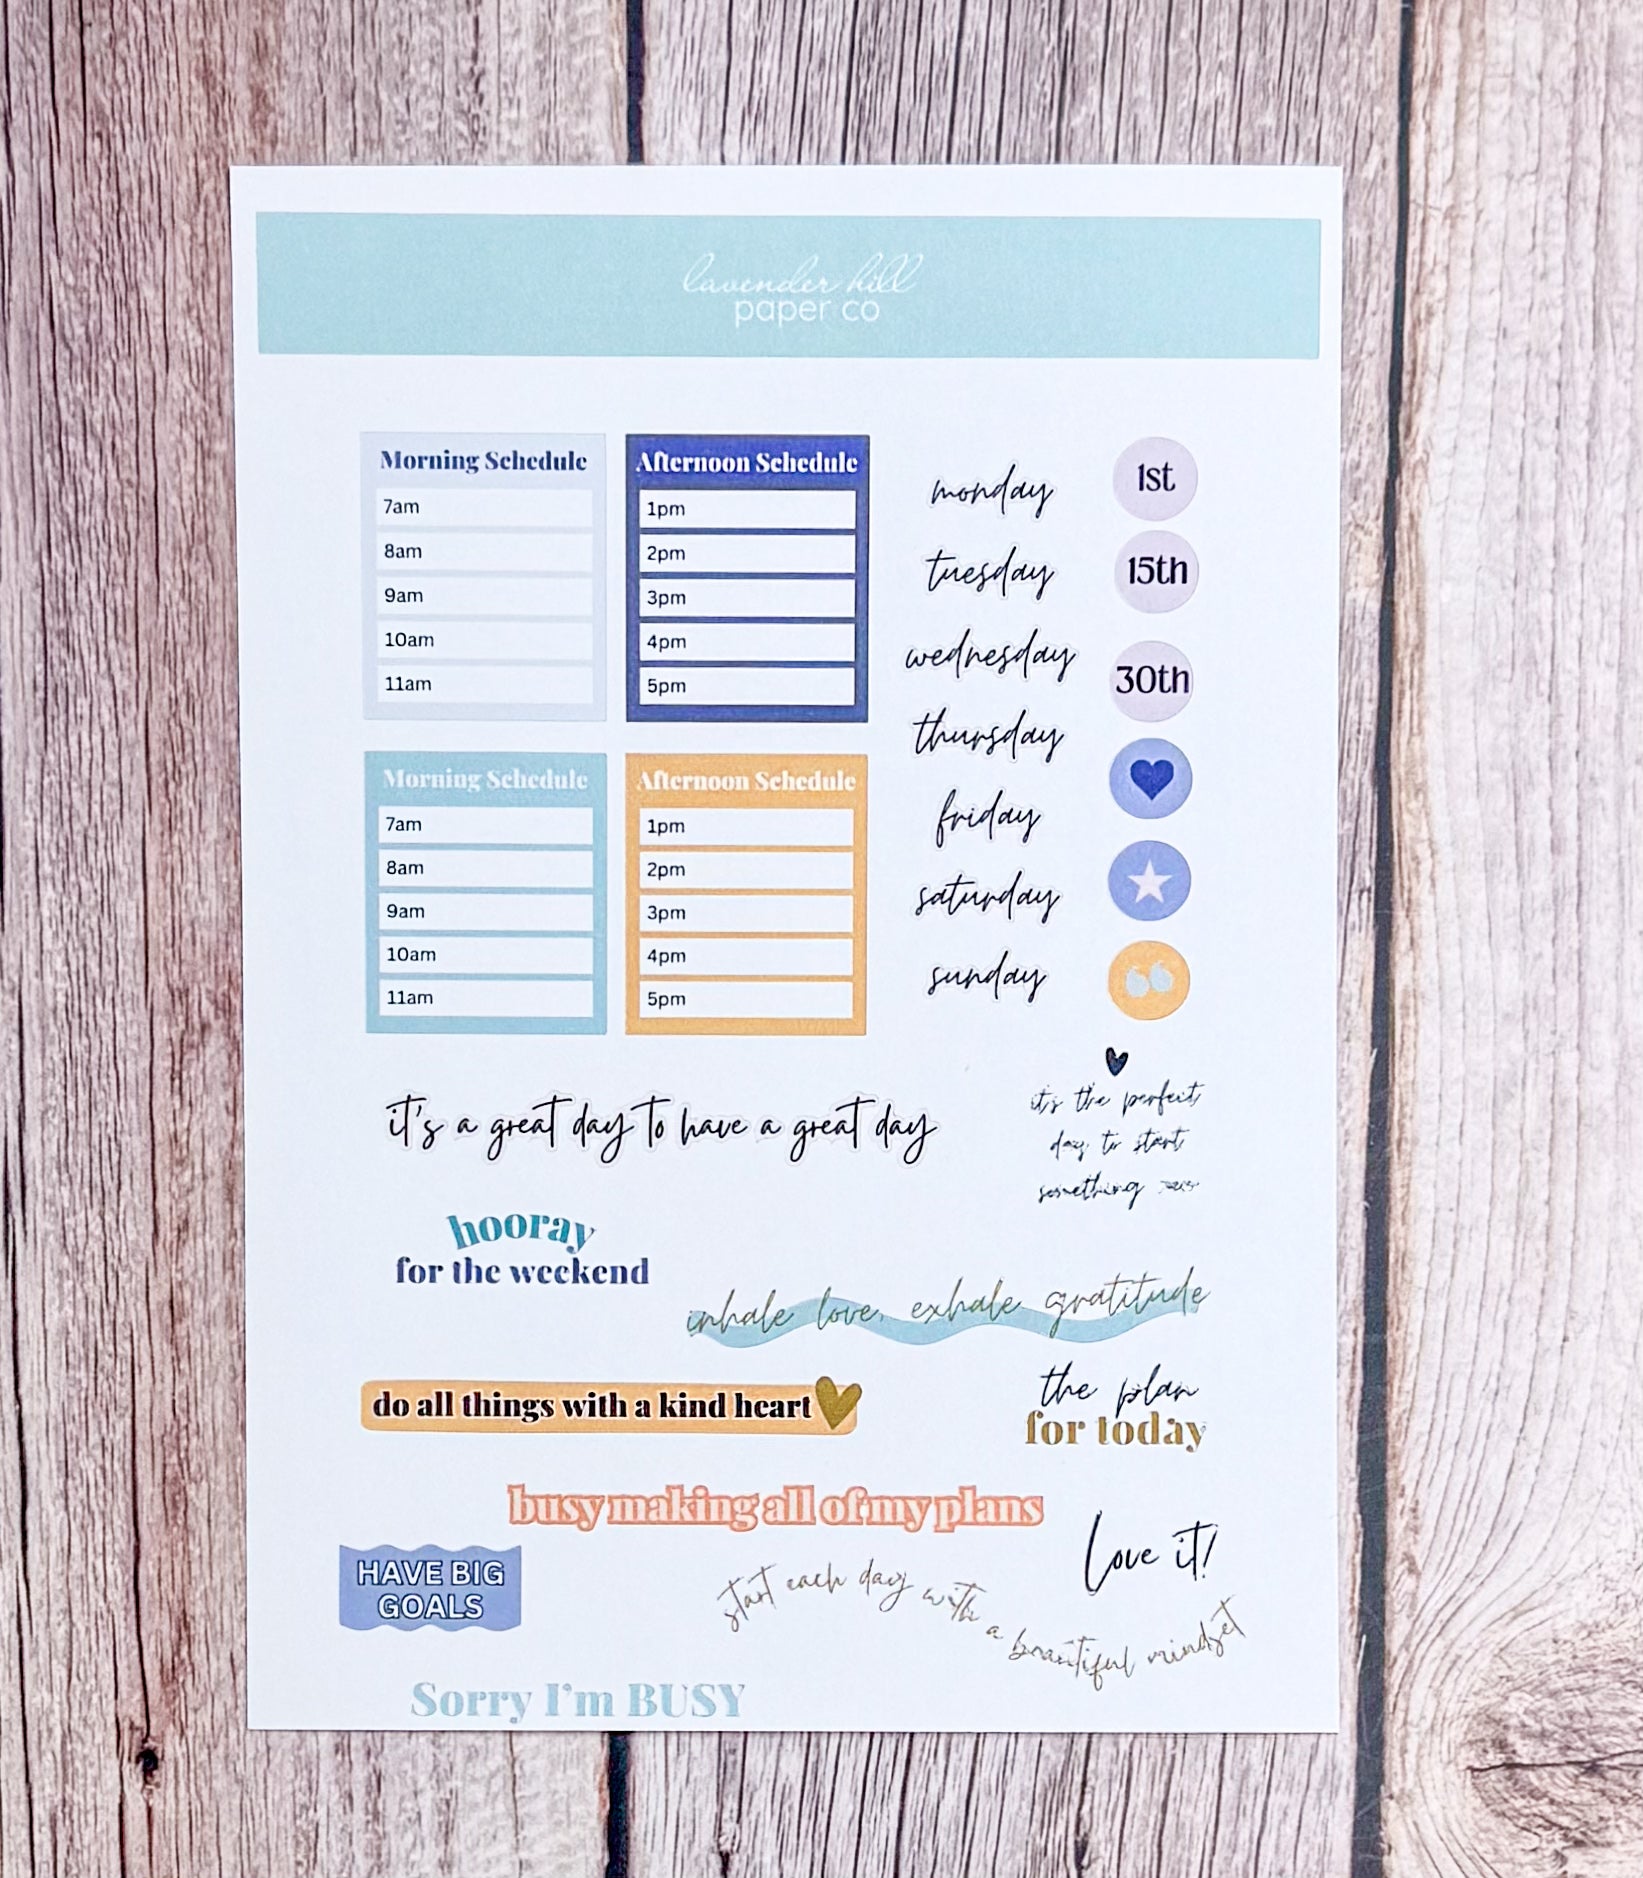 lavender hill
paper co
Morning Schedule
7am
8am
9am
10am
11am
Afternoon Schedule
1pm
2pm
3pm
4pm
5pm
monday
tuesday
wednesday
thursday
friday
saturday
sunday
1st
15th
30th
Morning Schedule
7am
8am
9am
10am
11am
Afternoon Schedule
1pm
2pm
3pm
4pm
5pm
it's a great day to have a great day
it's the perfect
day to start
something
hooray
for the weekend
inhale love, exhale gratitude
do all things with a kind heart
the plan
for today
busy making all of my plans
Love it!
HAVE BIG
GOALS
start each day with a beautiful mindset
Sorry I'm BUSY